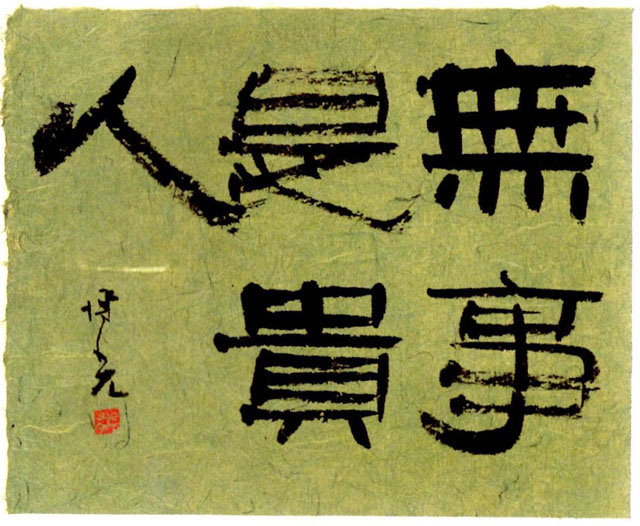 無事
是貴
人